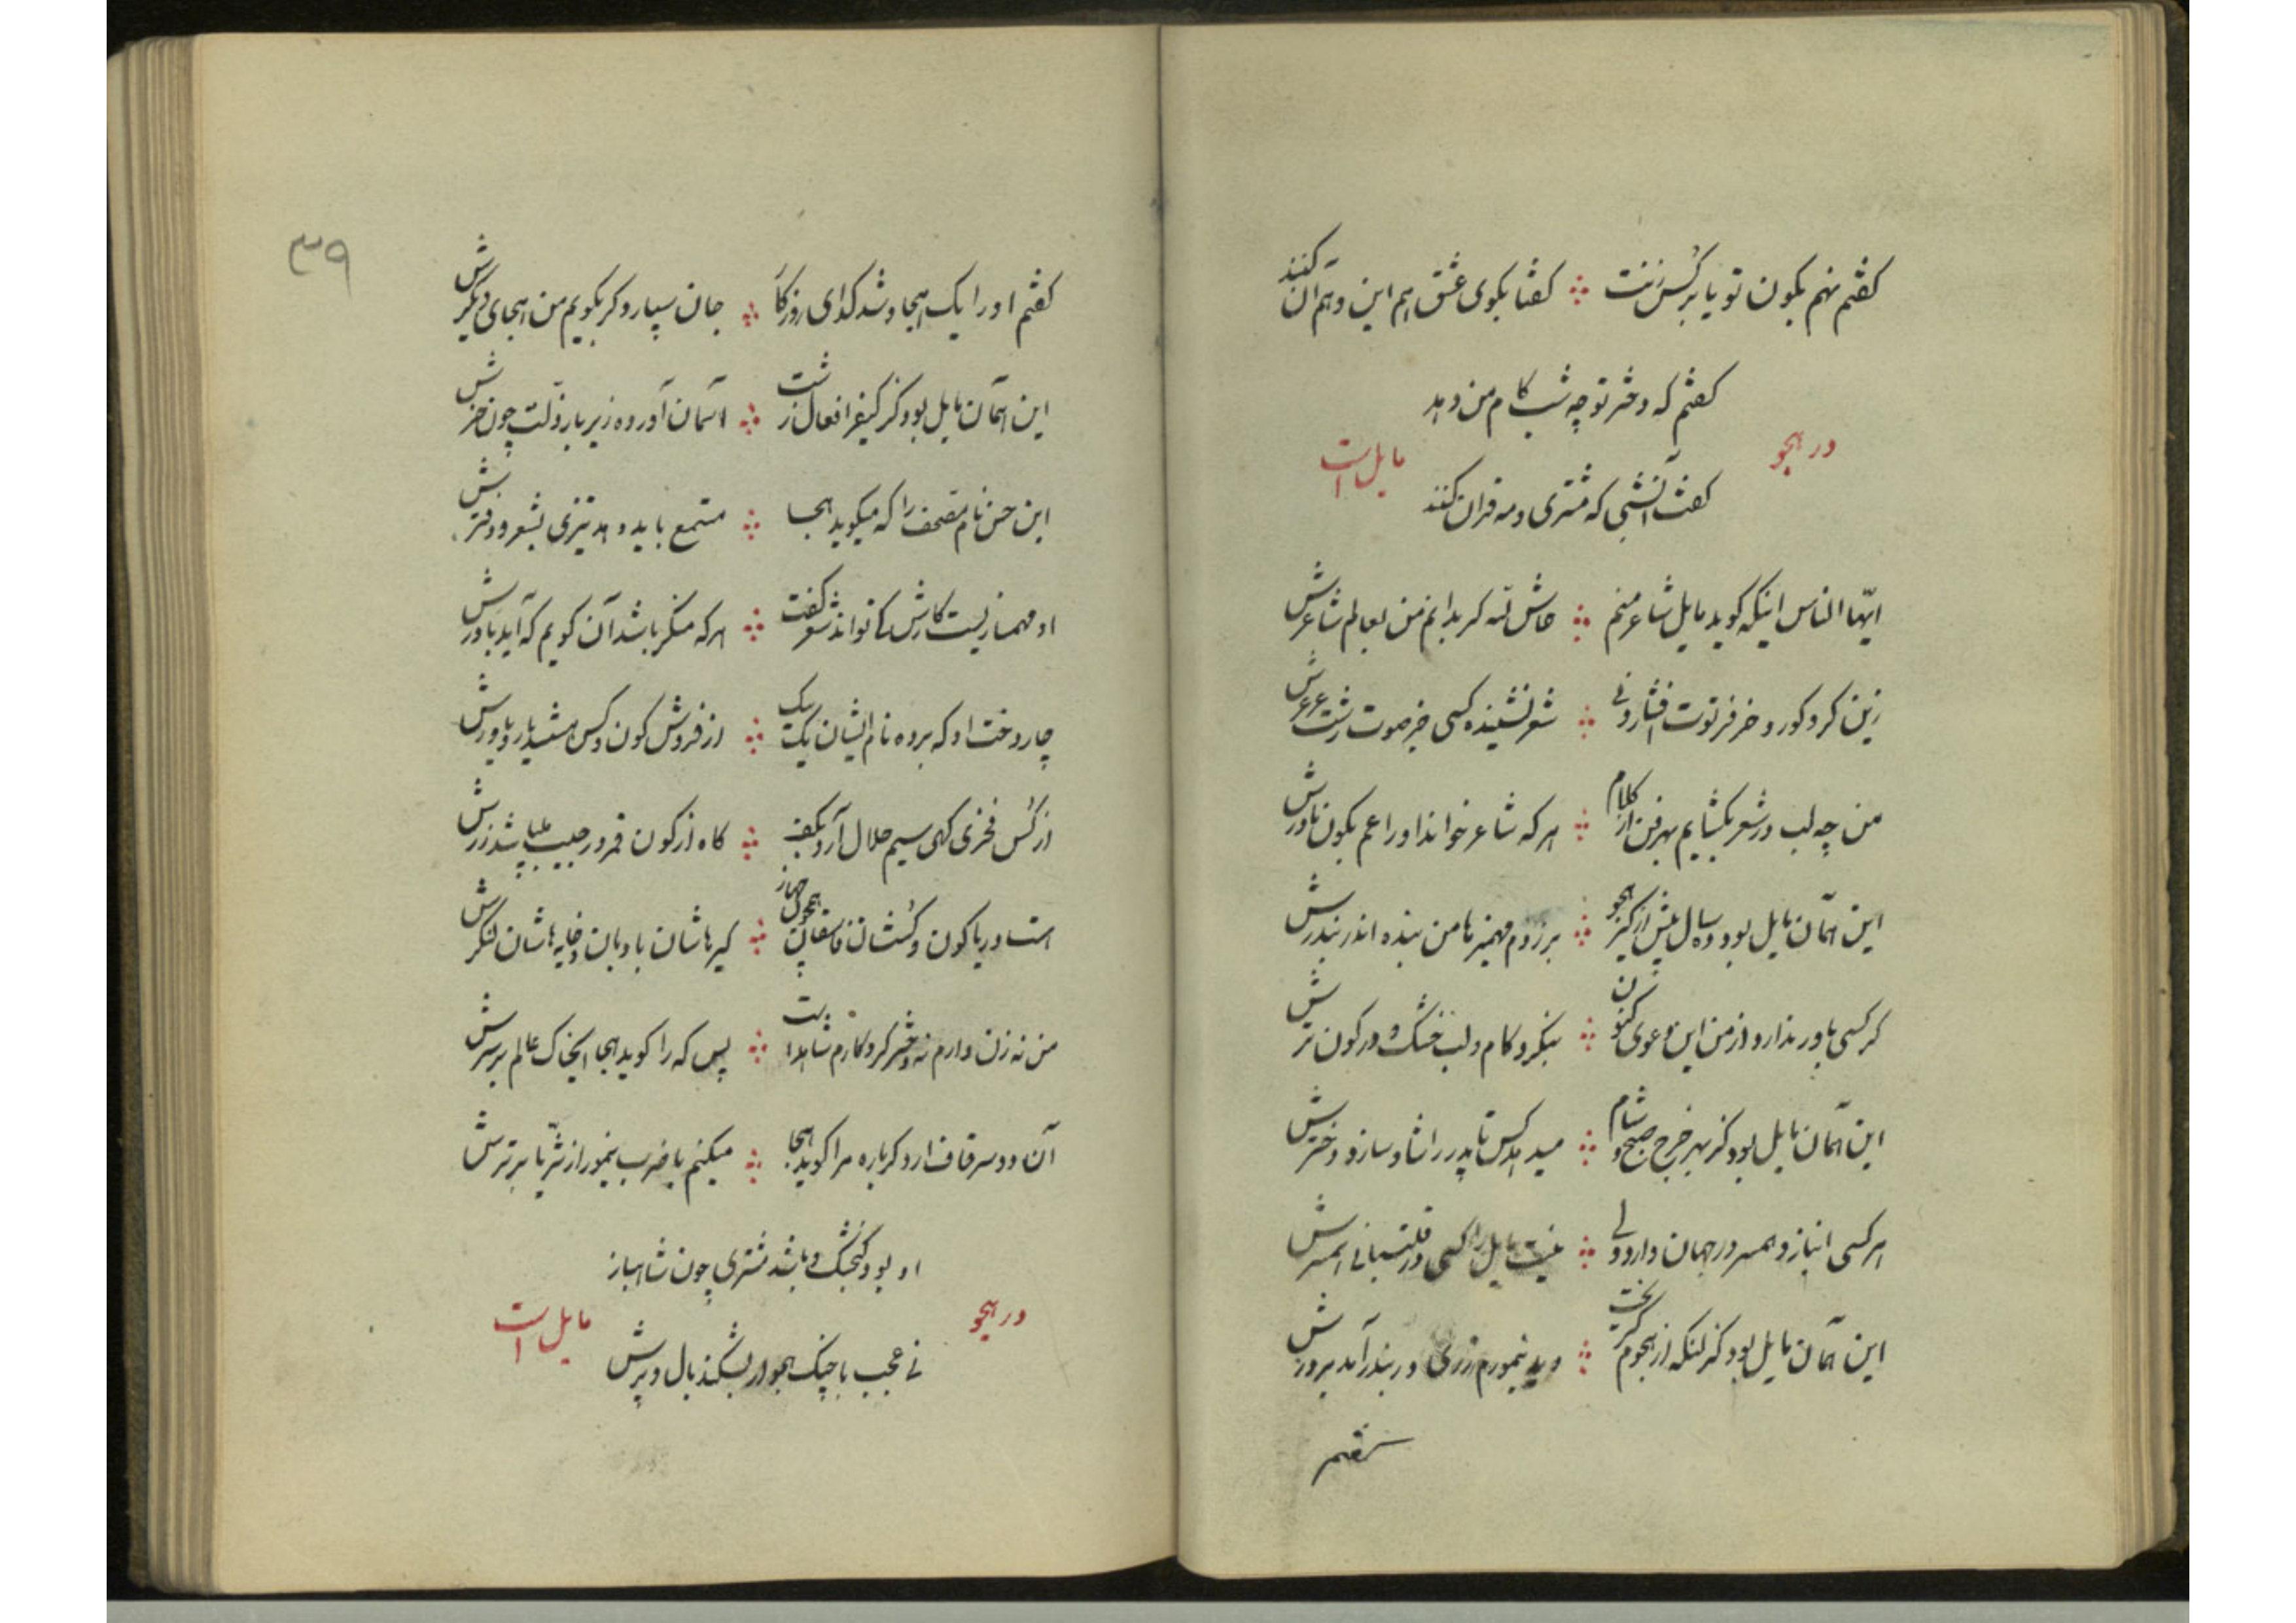 گفتم نهم بکون تو یا بر کس زنت ؞ گفتا بکوی عشق هم این و هم آن کنند
گفتم که دختر تو چه شب کام من دهد
در هجو
مایل است
گفت آنشبی که مشتری و مه قران کنند
ایها الناس اینکه کوید مایل شاعر منم ؞ حاش لله کر بدانم من بعالم شاعرش
زین کر و کور و خر فرتوت افشار ونی ؞ شعر نشینده کسی خیر صوت زشت عرعرش
من چه لب در شعر بکشایم بهر فن از کلام ؞ هر که شاعر خواند او را عم بکون مادرش
این همان مایل بود ده سال پیش از کیر هجو ؞ بر زدم مهمیز تا من بنده اندر بندرش
کر کسی باور ندارد از من این دعوی کنون ؞ بنکرد کام و لب خشک و در کون ترش
این همان مایل بود کز بهر خرج صبح و شام ؞ میدهد کس تا پدر را شاد سازد دخترش
هر کسی انباز و همسر در جهان دارد ولی ؞ نیست مایل را کسی در قلتبانی همسرش
این همان مایل بود کز لنکه از هجوم کریخت ؞ دید نیمورم زری در بندر آمد بر درش
گفتم او را یک هجا و شد کدای روزکار ؞ جان سپارد کر بکویم من هجای دیکرش
این همان مایل بود کز کیفر افعال زشت ؞ آسمان آورده زیر بار ذلت چون خرش
این حسن نام مصحف را که میکوید هجا ؞ مستمع باید دهد تیزی بشعر و دفترش
او مهمانریست کارش کی تواند شعر گفت ؞ هر که منکر باشد آن کویم که آید باورش
چار دخت او که برده نام ایشان یک بیک ؞ از فروش کون و کس هستند یار و یاورش
از کس فخری کهی سیم حلال آرد بکف ؞ کاه از کون قمر در جیب پاشد زرش
هست او دریا کون و کسشان فاسقان همچون جهاز ؞ کیرهاشان بادبان و خایه هاشان لنکرش
من نه زن دارم نه دختر کرد کارم شاهد است ؞ پس که را کوید هجا ایخاک عالم بر سرش
آن دو سر قاف ار دکر باره مرا کوید هجا ؞ میکنم با ضرب نیمور از ثریا برترش
او بود کنجشک و باشد مشتری چون شاهباز
در هجو
مایل است
نی عجب با چنک هجو ار بشکند بال و پرش
۳۹